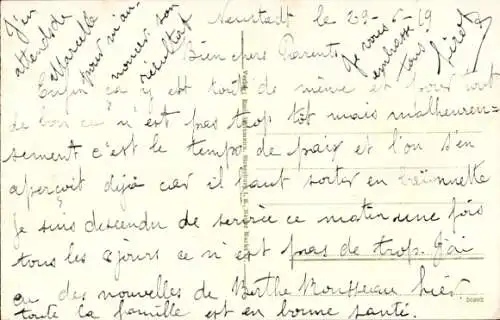 Neustadt le 29-6-19
Bien chers Parents
Enfin ça y est tout de même et pour tout
de bon ce n'est pas trop tôt mais malheureu=
sement c'est le temps de paix et l'on s'en
aperçoit déjà car il faut sortir en baïonnette
Je suis descendu de service ce matin une fois
tous les jours ce n'est pas de trop. J'ai
eu des nouvelles de Berthe Mousseau hier
toute la famille est en bonne santé.
J'en
attends de
Marcelle
pour m'an
noncer son
résultat
Je vous
embrasse
tous